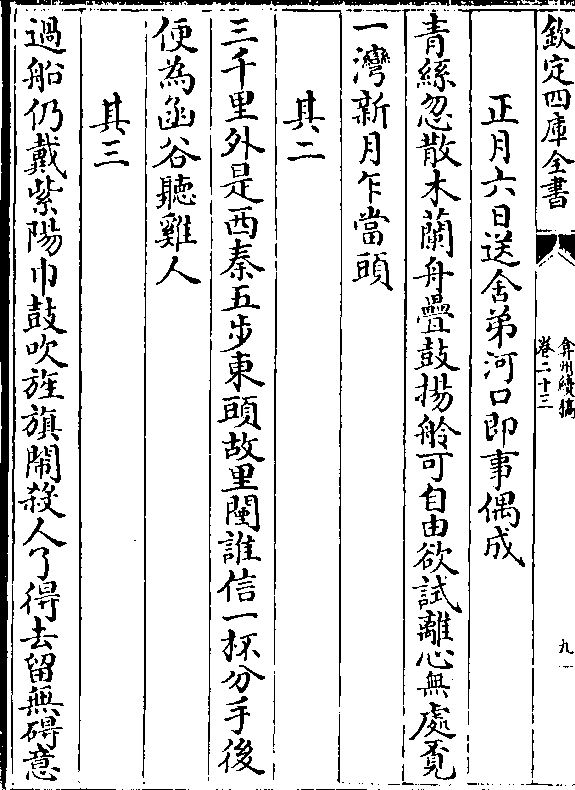 欽定四庫全書
弇州續稿
卷二十三
九
正月六日送舍弟河口即事偶成
青絲忽散木蘭舟疊鼓揚舲可自由欲試離心無處覔
一灣新月乍當頭
其二
三千里外是西秦五步東頭故里闉誰信一杯分手後
便為函谷聽雞人
其三
過船仍戴紫陽巾鼓吹旌旗鬧殺人了得去留無碍意